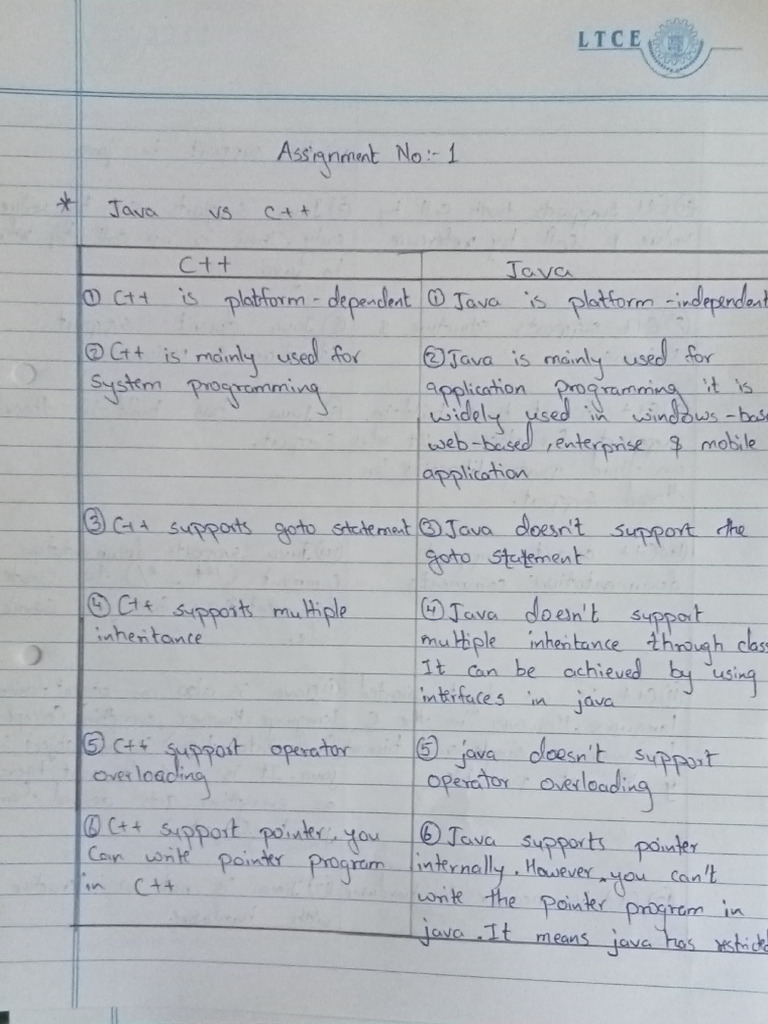 LTCE
Assignment No:- 1
* Java vs C++
C++
① C++ is platform-dependent
② C++ is mainly used for
System programming
③ C++ supports goto statement
④ C++ supports multiple
inheritance
⑤ C++ support operator
overloading
⑥ C++ support pointer, you
Can write pointer program
in C++.
Java
① Java is platform-independent
② Java is mainly used for
application programming it is
widely used in windows-bas
web-based, enterprise & mobile
application
③ Java doesn't support the
goto statement
④ Java doesn't support
multiple inheritance through class
It can be achieved by using
interfaces in java
⑤ java doesn't support
operator overloading
⑥ Java supports pointer
internally. However, you can't
write the pointer program in
java. It means java has restrict